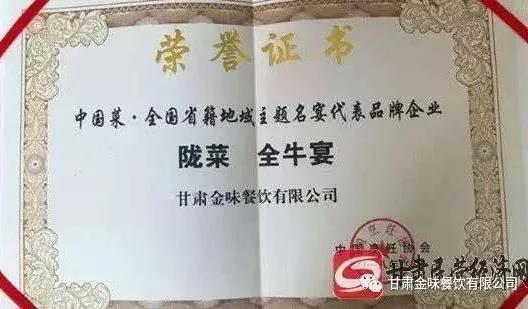 荣誉证书
中国菜·全国省籍地域主题名宴代表品牌企业
陇菜 全牛宴
甘肃金味餐饮有限公司
中国烹饪协会
甘肃民营经济网
甘肃金味餐饮有限公司